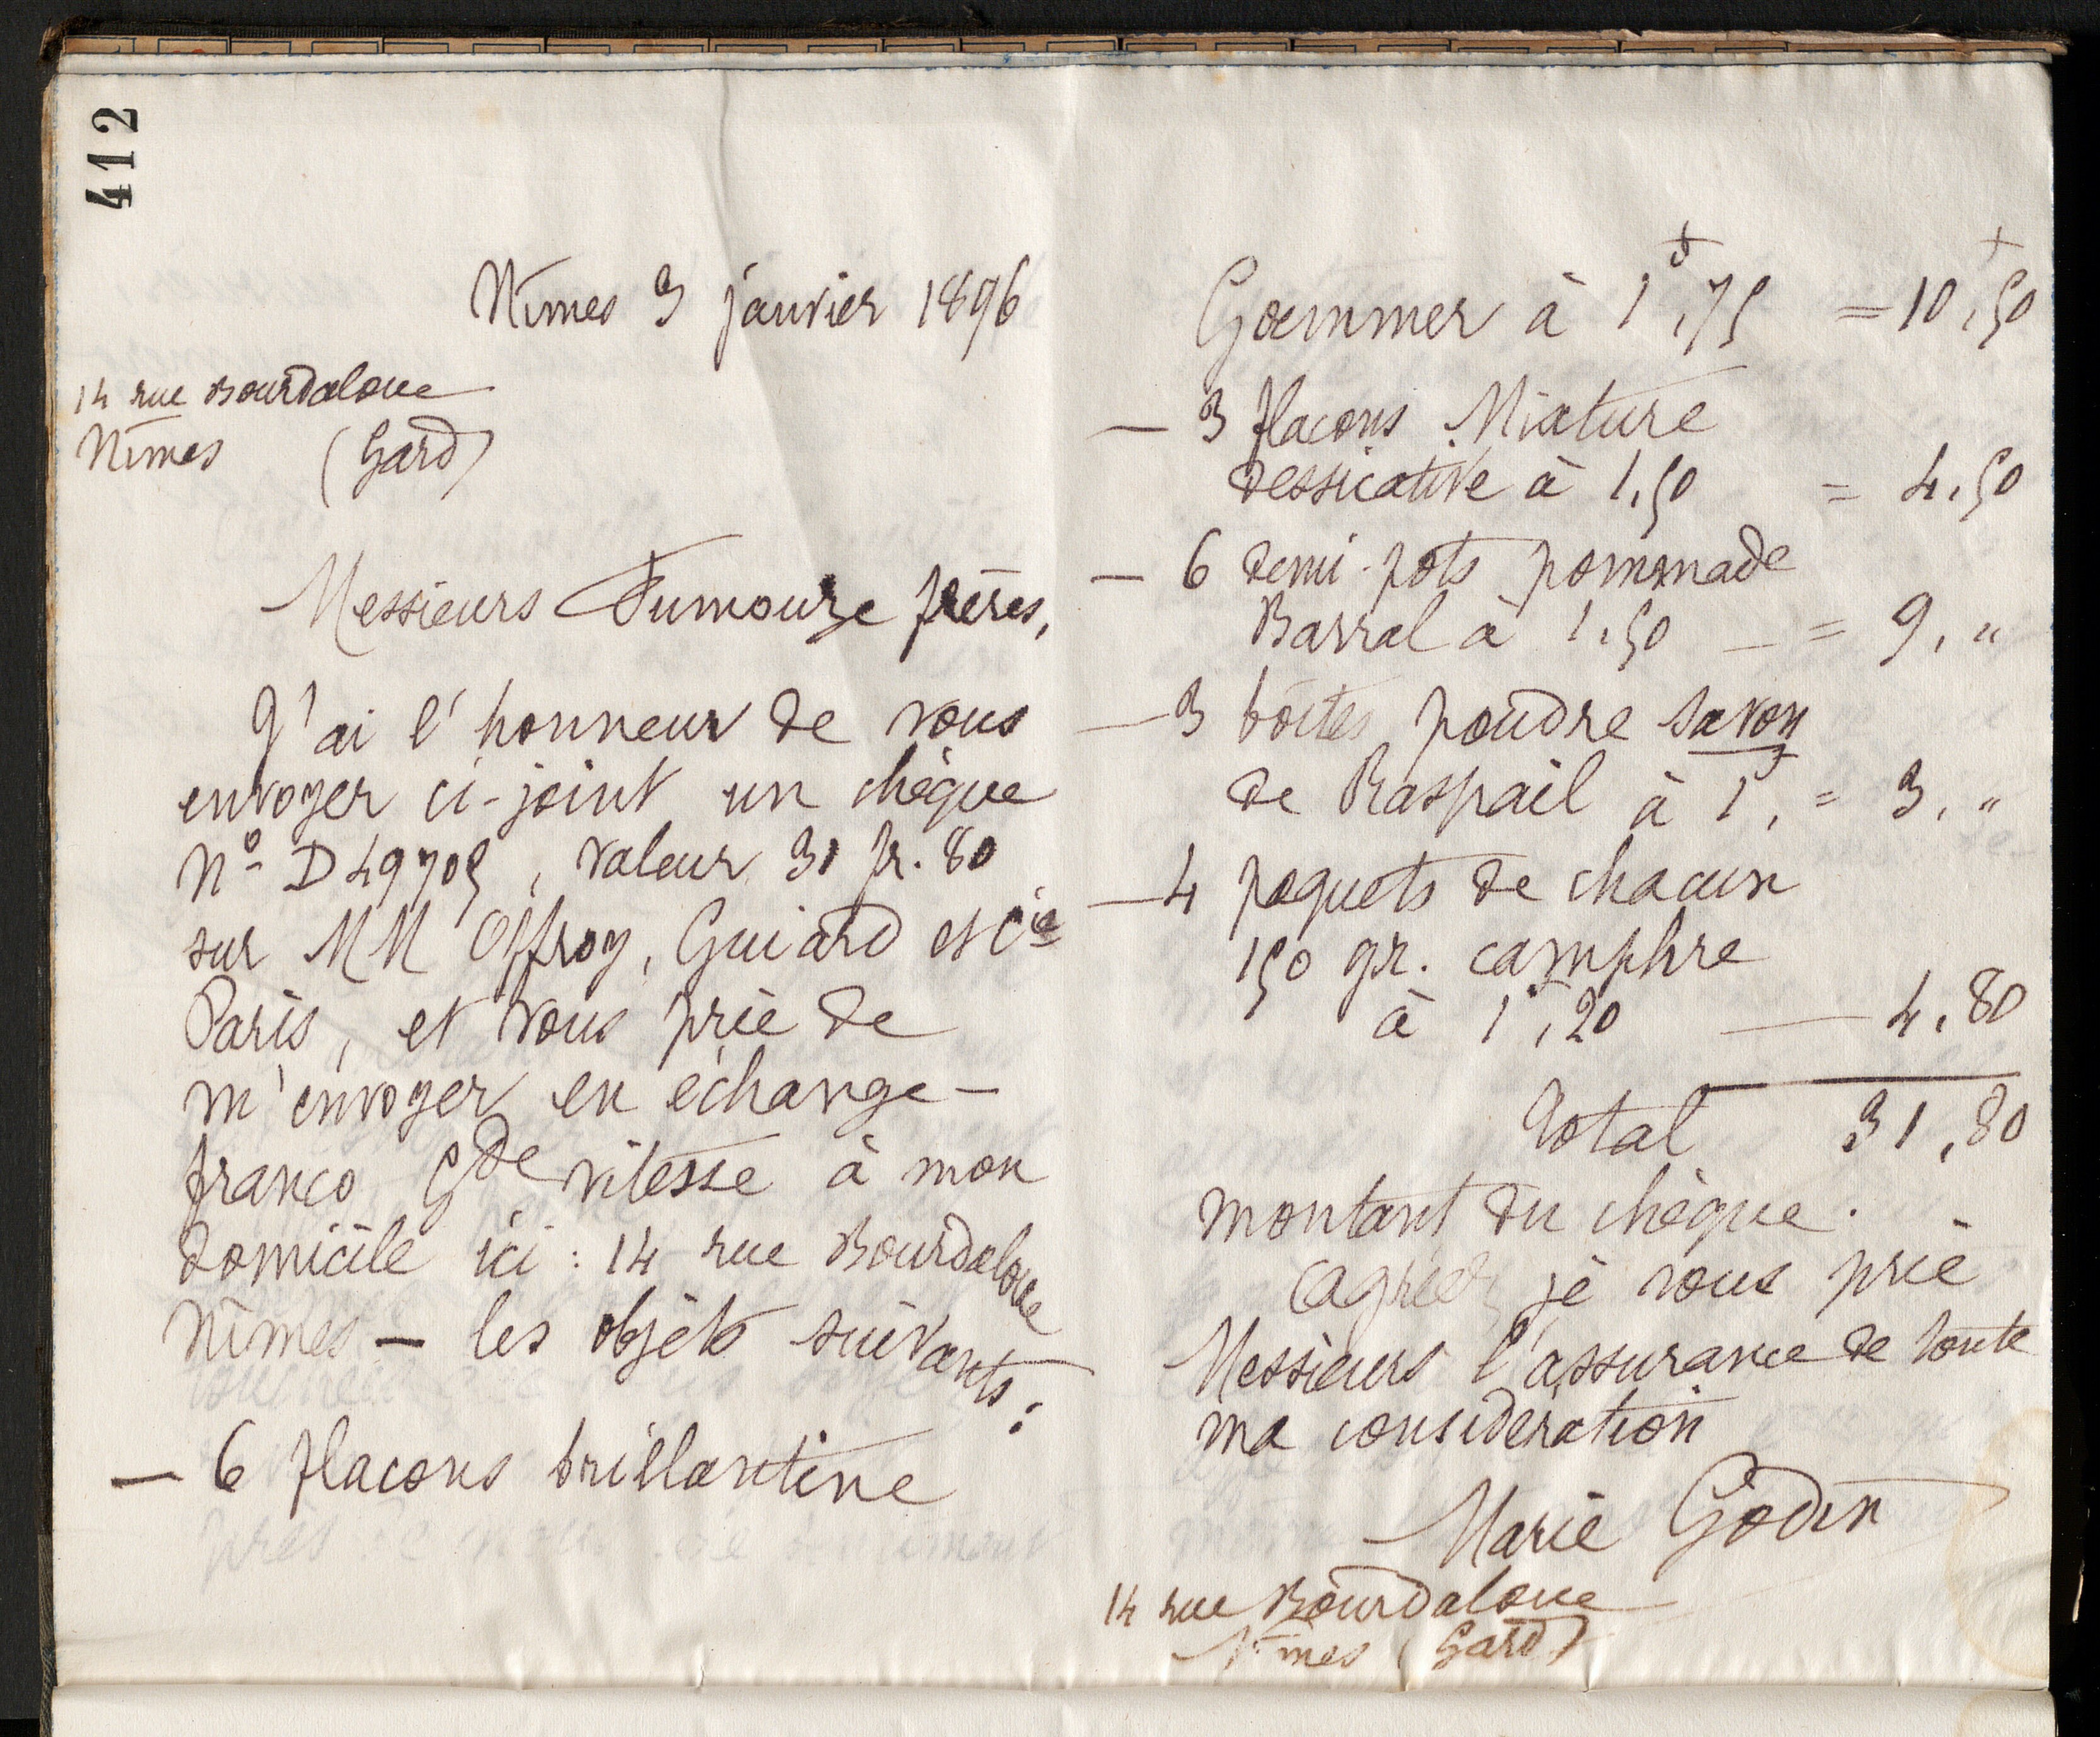 412
Nîmes 3 janvier 1896
14 rue Bourdaloue
Nîmes (Gard)
Messieurs Fumouze frères,
J'ai l'honneur de vous
envoyer ci-joint un chèque
N° D 49705, valeur 31 fr. 80
sur MM Offroy, Guiard et Cie
Paris, et vous prie de
m'envoyer en échange -
franco Gde vitesse à mon
domicile ici : 14 rue Bourdaloue
Nîmes - les objets suivants :
- 6 flacons brillantine
Goemmer à 1f,75 = 10f,50
- 3 flacons Mixture
dessicative à 1,50 = 4,50
- 6 demi-pots pommade
Barral à 1,50 - = 9, "
- 3 boîtes poudre savon
de Raspail à 1f, = 3, "
- 4 paquets de chacun
150 gr. camphre
à 1f,20 - 4,80
Total 31,80
montant du chèque.
Agréez, je vous prie
Messieurs l'assurance de toute
ma considération
Marie Godin
14 rue Bourdaloue
Nîmes (Gard)